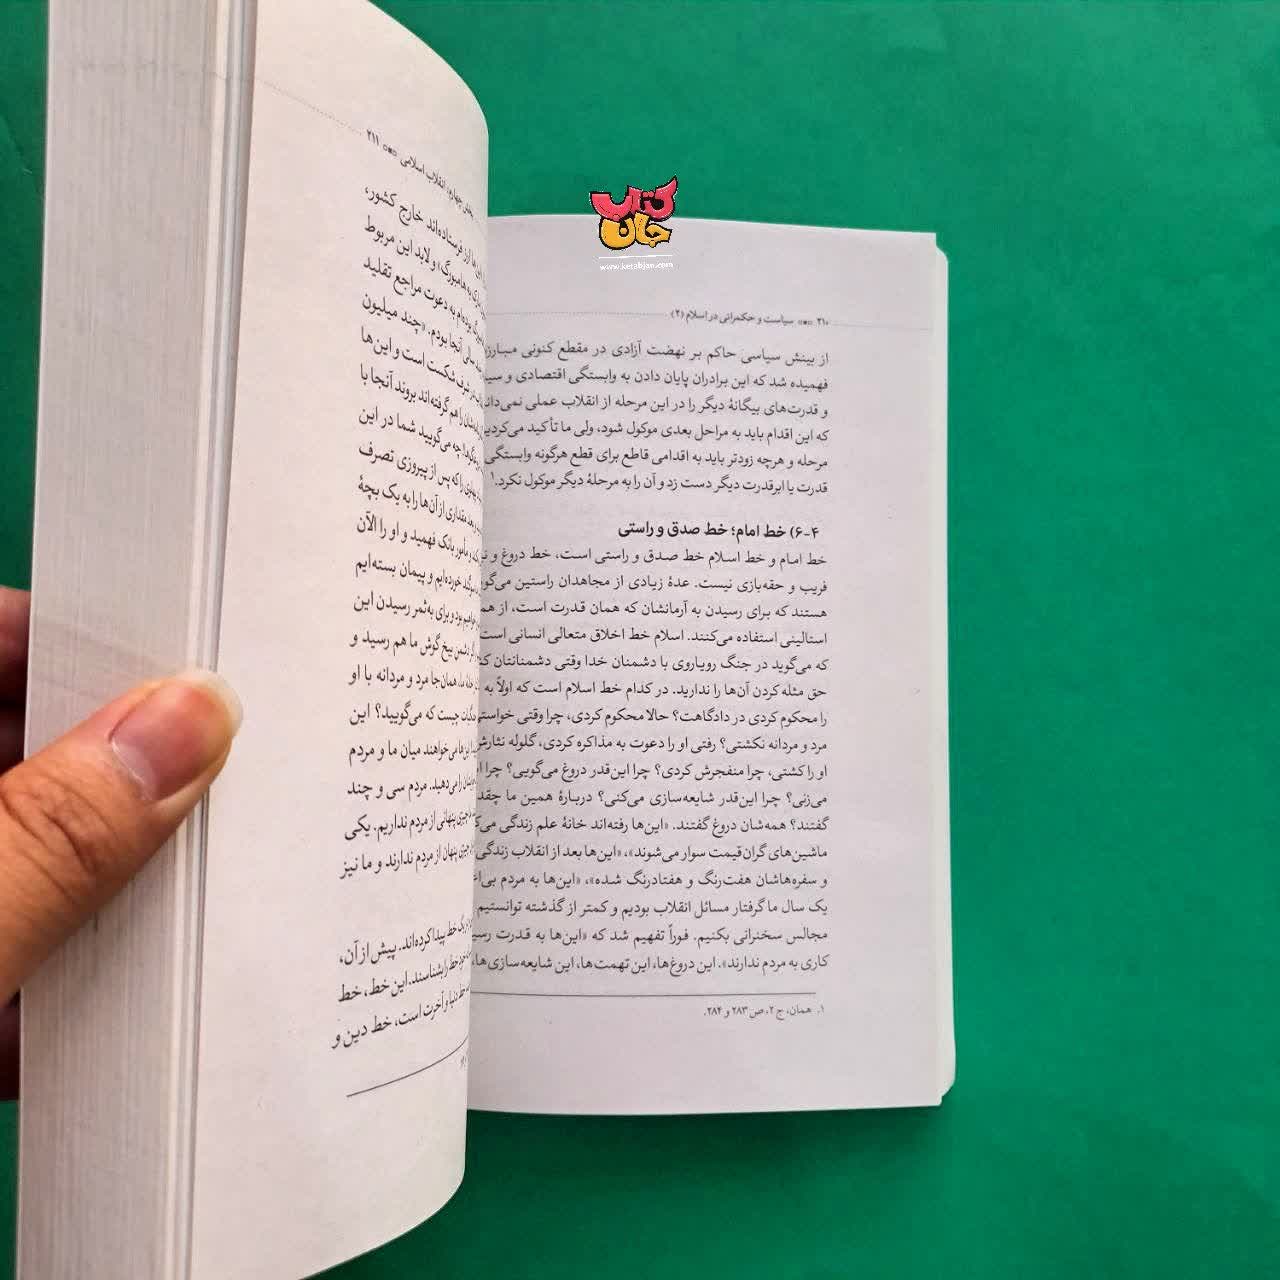 کتاب
جان
www.ketabjan.com
۲۱۰ سیاست و حکمرانی در اسلام (۲)
از بینش سیاسی حاکم بر نهضت آزادی در مقطع کنونی
فهمیده شد که این برادران پایان دادن به وابستگی اقتصادی و
و قدرت‌های بیگانهٔ دیگر را در این مرحله از انقلاب عملی
که این اقدام باید به مراحل بعدی موکول شود، ولی ما تأکید
مرحله و هرچه زودتر باید به اقدامی قاطع برای قطع هرگونه وابستگی
قدرت یا ابرقدرت دیگر دست زد و آن را به مرحلهٔ دیگر موکول نکرد.۱
۴-۶) خط امام؛ خط صدق و راستی
خط امام و خط اسلام خط صدق و راستی است، خط دروغ و
فریب و حقه‌بازی نیست. عدهٔ زیادی از مجاهدان راستین
هستند که برای رسیدن به آرمانشان که همان قدرت است، از
استالینی استفاده می‌کنند. اسلام خط اخلاق متعالی انسانی است
که می‌گوید در جنگ رویاروی با دشمنان خدا وقتی دشمنانتان
حق مثله کردن آن‌ها را ندارید. در کدام خط اسلام است که اولاً به
را محکوم کردی در دادگاهت؟ حالا محکوم کردی، چرا وقتی
مرد و مردانه نکشتی؟ رفتی او را دعوت به مذاکره کردی، گلوله
او را کشتی، چرا منفجرش کردی؟ چرا این‌قدر دروغ می‌گویی؟ چرا
می‌زنی؟ چرا این‌قدر شایعه‌سازی می‌کنی؟ دربارهٔ همین ما
گفتند؟ همه‌شان دروغ گفتند. «این‌ها رفته‌اند خانهٔ علم زندگی
ماشین‌های گران‌قیمت سوار می‌شوند»، «این‌ها بعد از انقلاب زندگی
و سفره‌هاشان هفت‌رنگ و هفتادرنگ شده»، «این‌ها به مردم
یک سال ما گرفتار مسائل انقلاب بودیم و کمتر از گذشته توانستیم
مجالس سخنرانی بکنیم. فوراً تفهیم شد که «این‌ها به قدرت
کاری به مردم ندارند». این دروغ‌ها، این تهمت‌ها، این شایعه‌سازی‌ها،
۱. همان، ج ۲، ص ۲۸۳ و ۲۸۴.
انقلاب اسلامی ۲۱۱
ارز فرستاده‌اند خارج کشور،
هامبورگ» و لابد این مربوط
به دعوت مراجع تقلید
سالی آنجا بودم. «چند میلیون
شرف شکست است و این‌ها
را هم گرفته‌اند بروند آنجا با
چه می‌گویید شما در این
را که پس از پیروزی تصرف
مقداری از آن‌ها را به یک بچهٔ
مأمور بانک فهمید و او را الآن
خورده‌ایم و پیمان بسته‌ایم
بود و برای به‌ثمر رسیدن این
دشمن بیخ گوش ما هم رسید و
همان‌جا مرد و مردانه با او
چیست که می‌گویید؟ این
این‌ها می‌خواهند میان ما و مردم
را می‌دهید. مردم سی و چند
چیزی پنهانی از مردم نداریم. یکی
چیزی پنهان از مردم ندارند و ما نیز
یک خط پیدا کرده‌اند. پیش از آن،
خط را بشناسند. این خط، خط
دنیا و آخرت است، خط دین و